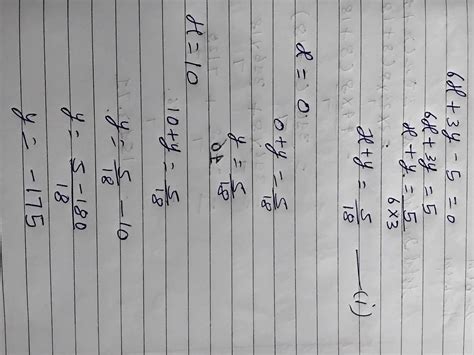 6x + 3y - 5 = 0
6x + 3y = 5
x + y = 5/6×3
x + y = 5/18 —— (i)
x = 0
0 + y = 5/18
y = 5/18
x = 10
10 + y = 5/18
y = 5/18 - 10
y = 5 - 180/18
y = -175